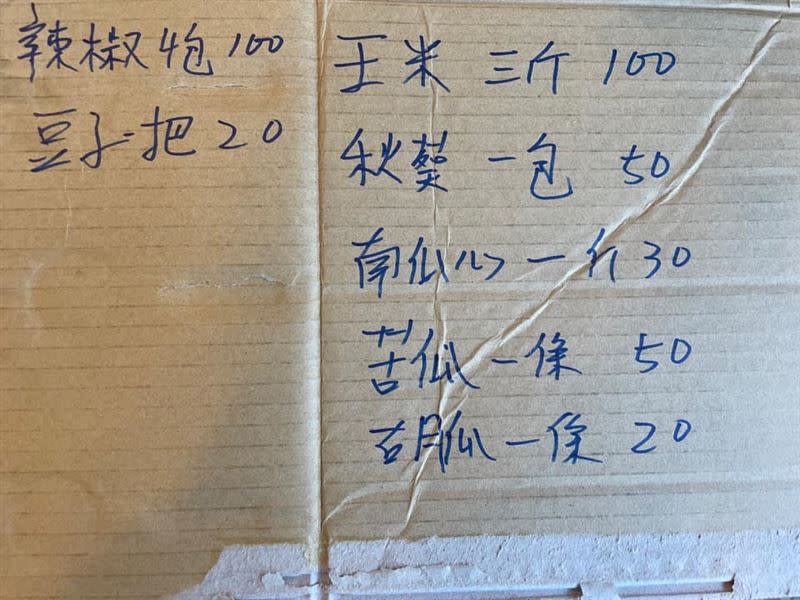 辣椒4包 100
豆子一把 20
王米 三斤 100
秋葵 一包 50
南瓜心 一斤 30
苦瓜 一條 50
胡瓜 一條 20